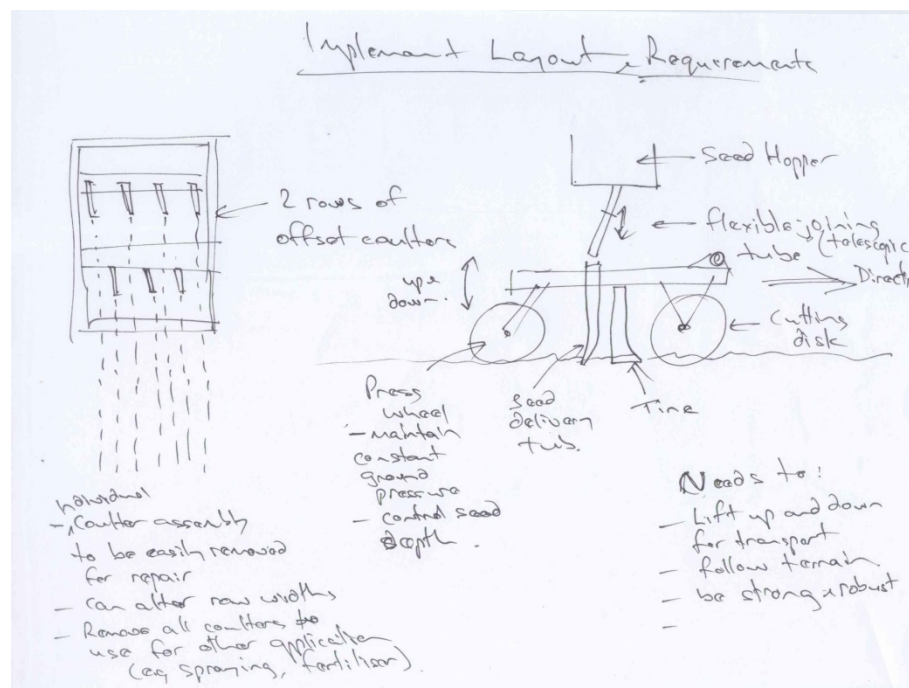 Implement Layout, Requirements
2 rows of
offset coulters
Seed Hopper
flexible joining
(telescopic
tube
up &
down.
Direct
Cutting
disk
Press
wheel
- maintain
constant
ground
pressure
- control seed
depth.
Seed
delivery
tub.
Tine
Individual
- Coulter assembly
to be easily removed
for repair
- Can alter row widths
- Remove all coulters to
use for other application
(eg spraying, fertiliser).
Needs to:
- Lift up and down
for transport
- follow terrain
- be strong & robust
-